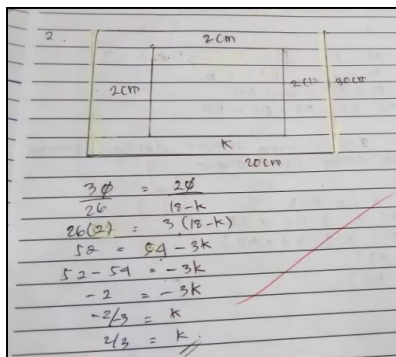 2.
2cm
2cm 2cm 30cm
K
20cm
30/26 = 20/18-k
26(2) = 3(18-k)
52 = 54 - 3k
52-54 = -3k
-2 = -3k
-2/3 = k
2/3 = k